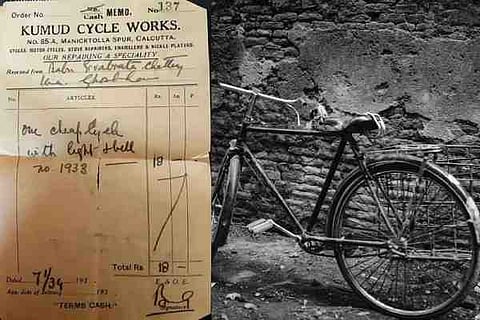 Order No.
Cash MEMO.
No 137
KUMUD CYCLE WORKS.
No. 85-A, MANICKTOLLA SPUR, CALCUTTA.
CYCLES, MOTOR-CYCLES, STOVE REPAIRERS, ENAMELLERS & NICKLE PLATERS.
OUR REPAIRING A SPECIALITY
Received from
No. ARTICLES Rs As P
one cheap cycle
with light + bell 18
no. 1933
Total Rs. 18 —
Dated 7/1/34 193
193 E. & O. E.
"TERMS CASH."